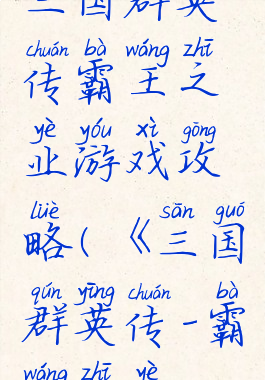 三国群英
chuán bà wáng zhī
传霸王之
yè yóu xì gōng
业游戏攻
lüè sān guó
略(《三国
qún yīng chuán bà
群英传-霸
wáng zhī yè